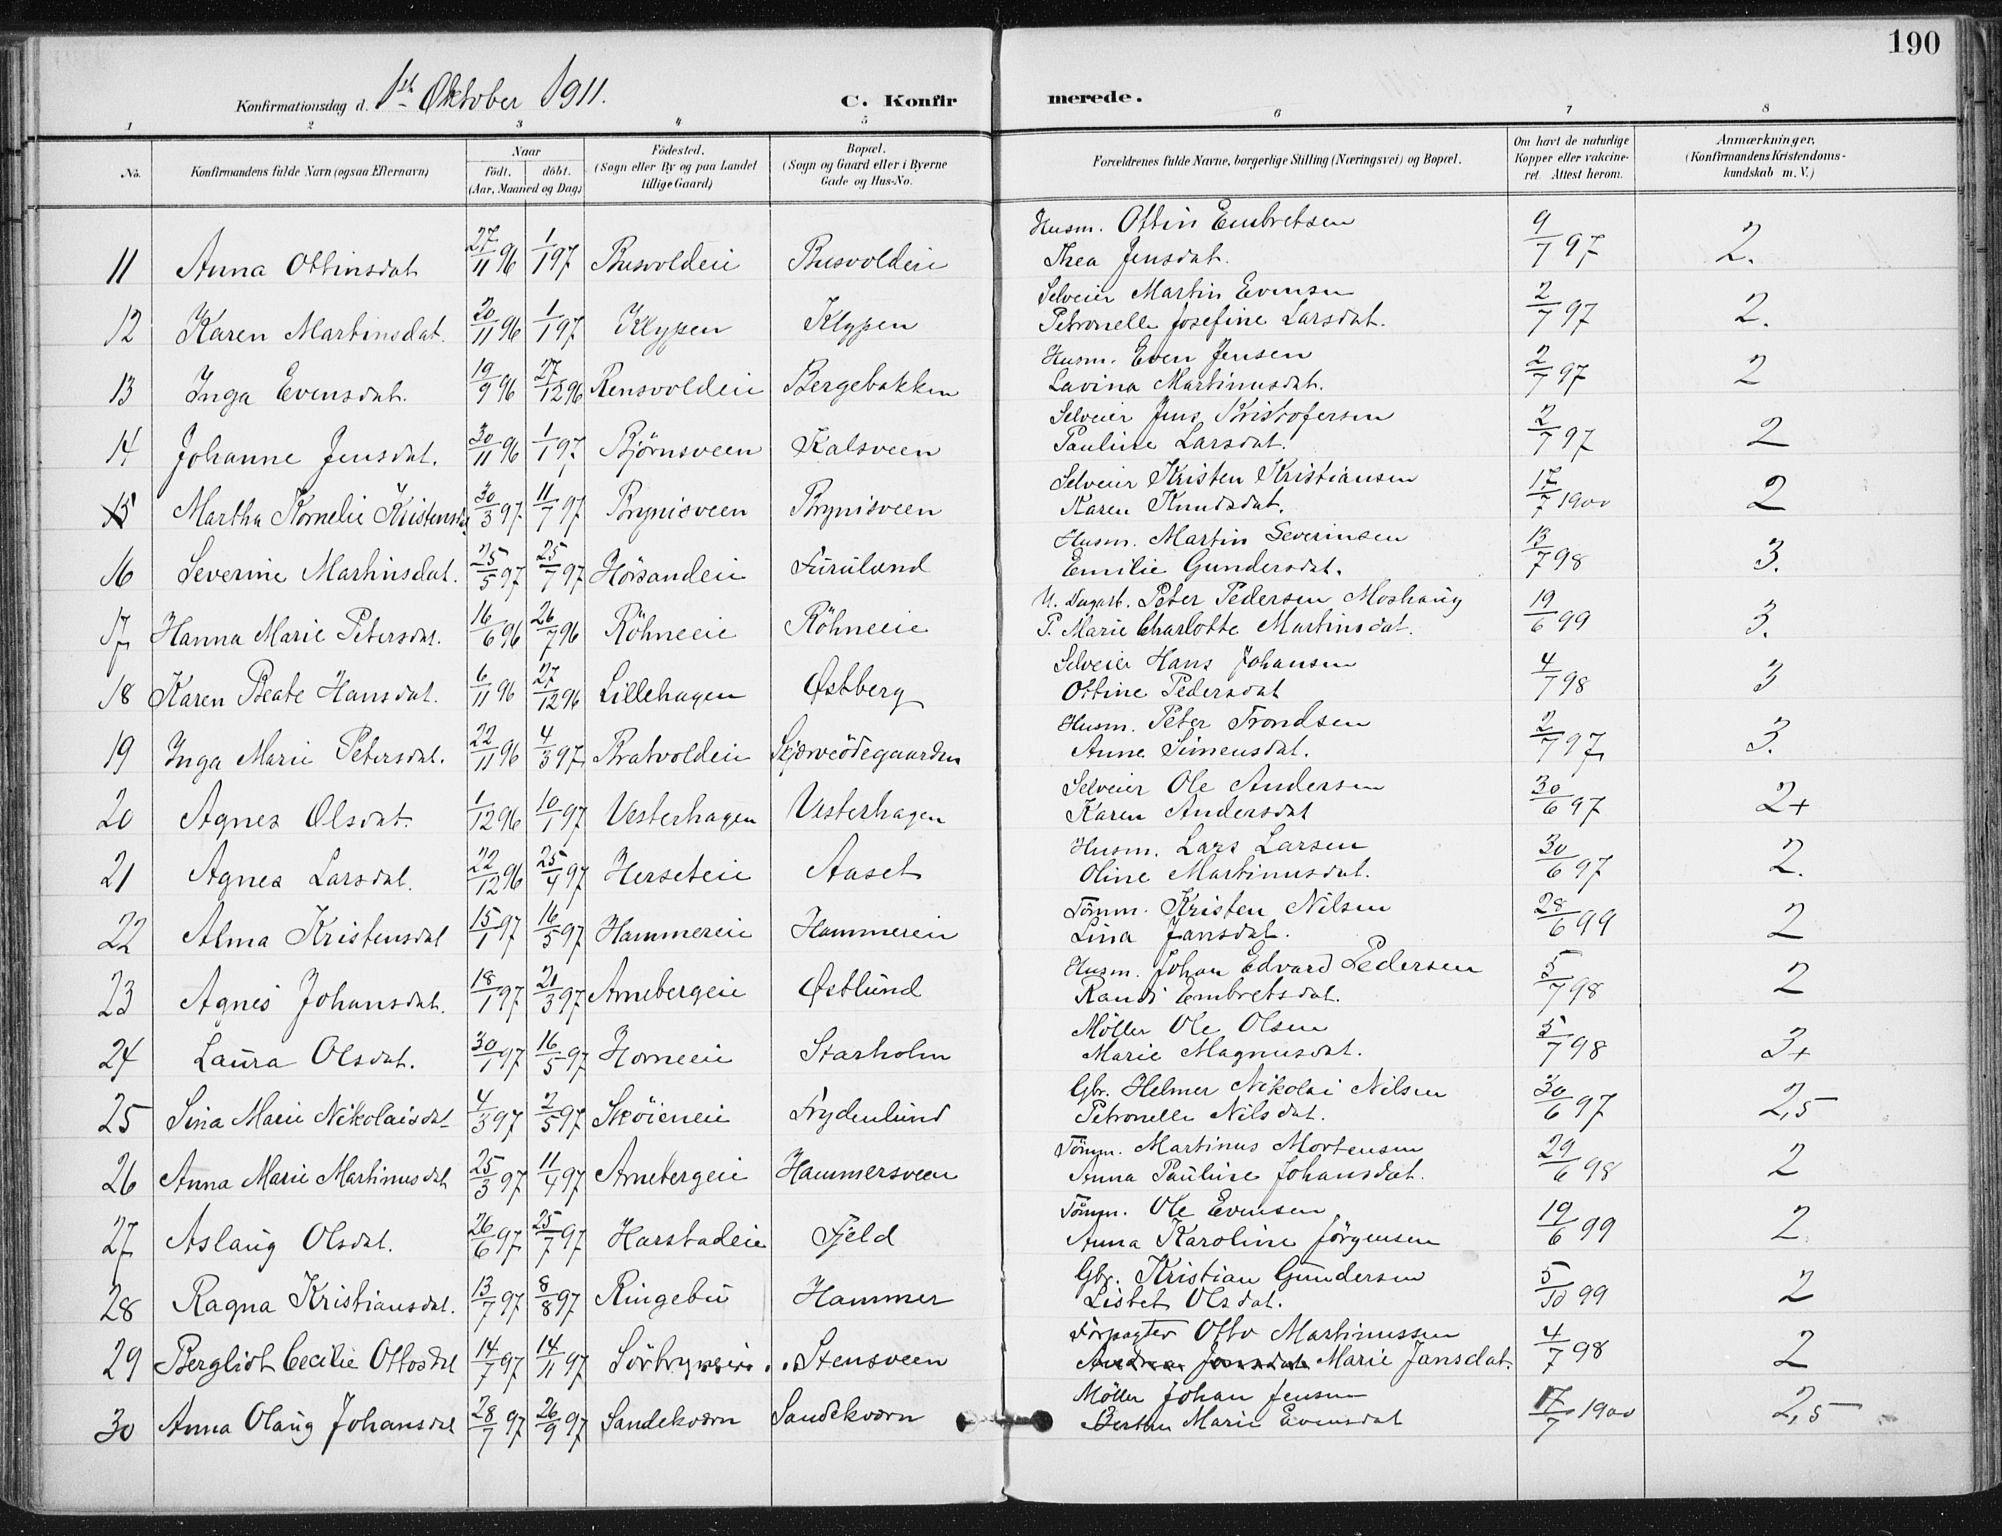 190
Konfirmationsdag d. 1ste Oktober 1911. C. Konfirmerede.
1 2 3 4 5 6 7 8
No. Konfirmandens fulde Navn (ogsaa Efternavn) Naar født. døbt. (Aar, Maaned og Dag) Födested. (Sogn eller By og paa Landet tillige Gaard) Bopæl. (Sogn og Gaard eller i Byerne Gade og Hus-No. Forældrenes fulde Navne, borgerlige Stilling (Næringsvei) og Bopæl. Om havt de naturlige Kopper eller vakcineret. Attest herom. Anmærkninger. (Konfirmandens Kristendomskundskab m. V.)
11 Anna Ottinsdat 27/11 96 1/1 97 Busvoldeie Busvoldeie Husm. Ottin Embretsen
Thea Jensdat. 9/7 97 2.
12 Karen Martinsdat. 20/11 96 1/1 97 Klypen Klypen Selveier Martin Evensen
Petronelle Josefine Larsdat. 2/7 97 2.
13 Inga Evensdat. 19/9 96 27/12 96 Rensvoldeie Bergebakken Husm. Even Jensen
Lavina Martinusdat. 2/7 97 2
14 Johanne Jensdat. 30/11 96 1/1 97 Bjørnsveen Kalsveen Selveier Jens Kristofersen
Pauline Larsdat. 2/7 97 2
15 Martha Kornelie Kristensdat. 30/3 97 11/7 97 Brynisveen Brynisveen Selveier Kristen Kristiansen
Karen Knudsdat. 17/7 1900 2
16 Severine Martinsdat. 25/5 97 25/7 97 Hørsandeie Furulund Husm. Martin Severinsen
Emilie Gundersdat. 13/7 98 3.
17 Hanna Marie Petersdat. 16/6 96 26/7 96 Röhneeie Röhneeie U. Dagarb. Peter Pedersen Moshaug
P. Marie Charlotte Martinsdat. 19/6 99 3.
18 Karen Beate Hansdat. 6/11 96 27/12 96 Lillehagen Østberg Selveier Hans Johansen
Ottine Pedersdat 4/7 98 3
19 Inga Marie Petersdat. 22/11 96 4/3 97 Bratvoldeie Skjærveödegaarden Husm. Peter Trondsen
Anne Simensdat. 2/7 97 3.
20 Agnes Olsdat. 1/12 96 10/1 97 Vesterhagen Vesterhagen Selveier Ole Andersen
Karen Andersdat 30/6 97 2+
21 Agnes Larsdat. 22/12 96 25/4 97 Herseteie Aaset Husm. Lars Larsen
Oline Martinusdat. 30/6 97 2.
22 Alma Kristensdat 15/1 97 16/5 97 Hammereie Hammereie Tömm. Kristen Nilsen
Lina Jansdat. 28/6 99 2
23 Agnes Johansdat. 18/1 97 21/3 97 Arnebergeie Østlund Husm. Johan Edvard Pedersen
Randi Embretsdat. 5/7 98 2
24 Laura Olsdat. 30/1 97 16/5 97 Horneeie Starholm Möller Ole Olsen
Marie Magnusdat. 5/7 98 3+
25 Sina Marie Nikolaisdat 4/3 97 2/5 97 Skøieneie Frydenlund Gbr. Helmer Nikolai Nilsen
Petronelle Nilsdat. 30/6 97 2,5
26 Anna Marie Martinusdat 25/3 97 11/4 97 Arnebergeie Hammersveen Tömm. Martinus Mortensen
Anna Pauline Johansdat. 29/6 98 2
27 Aslaug Olsdat. 26/6 97 25/7 97 Harstadeie Fjeld Tömm. Ole Evensen
Anna Karoline Jörgensen 19/6 99 2
28 Ragna Kristiansdat. 13/7 97 8/8 97 Ringebu Hammer Gbr. Kristian Gundersen
Lisbet Olsdat. 5/10 99 2
29 Bergliot Cecilie Ottosdat 14/7 97 14/11 97 Stensveen Forpagter Otto Martinussen
Marie Jansdat. 4/7 98 2
30 Anna Olaug Johansdat 28/7 97 26/9 97 Sandekværn Sandekværn Möller Johan Jensen
Berthe Marie Evensdat 17/7 1900 2,5